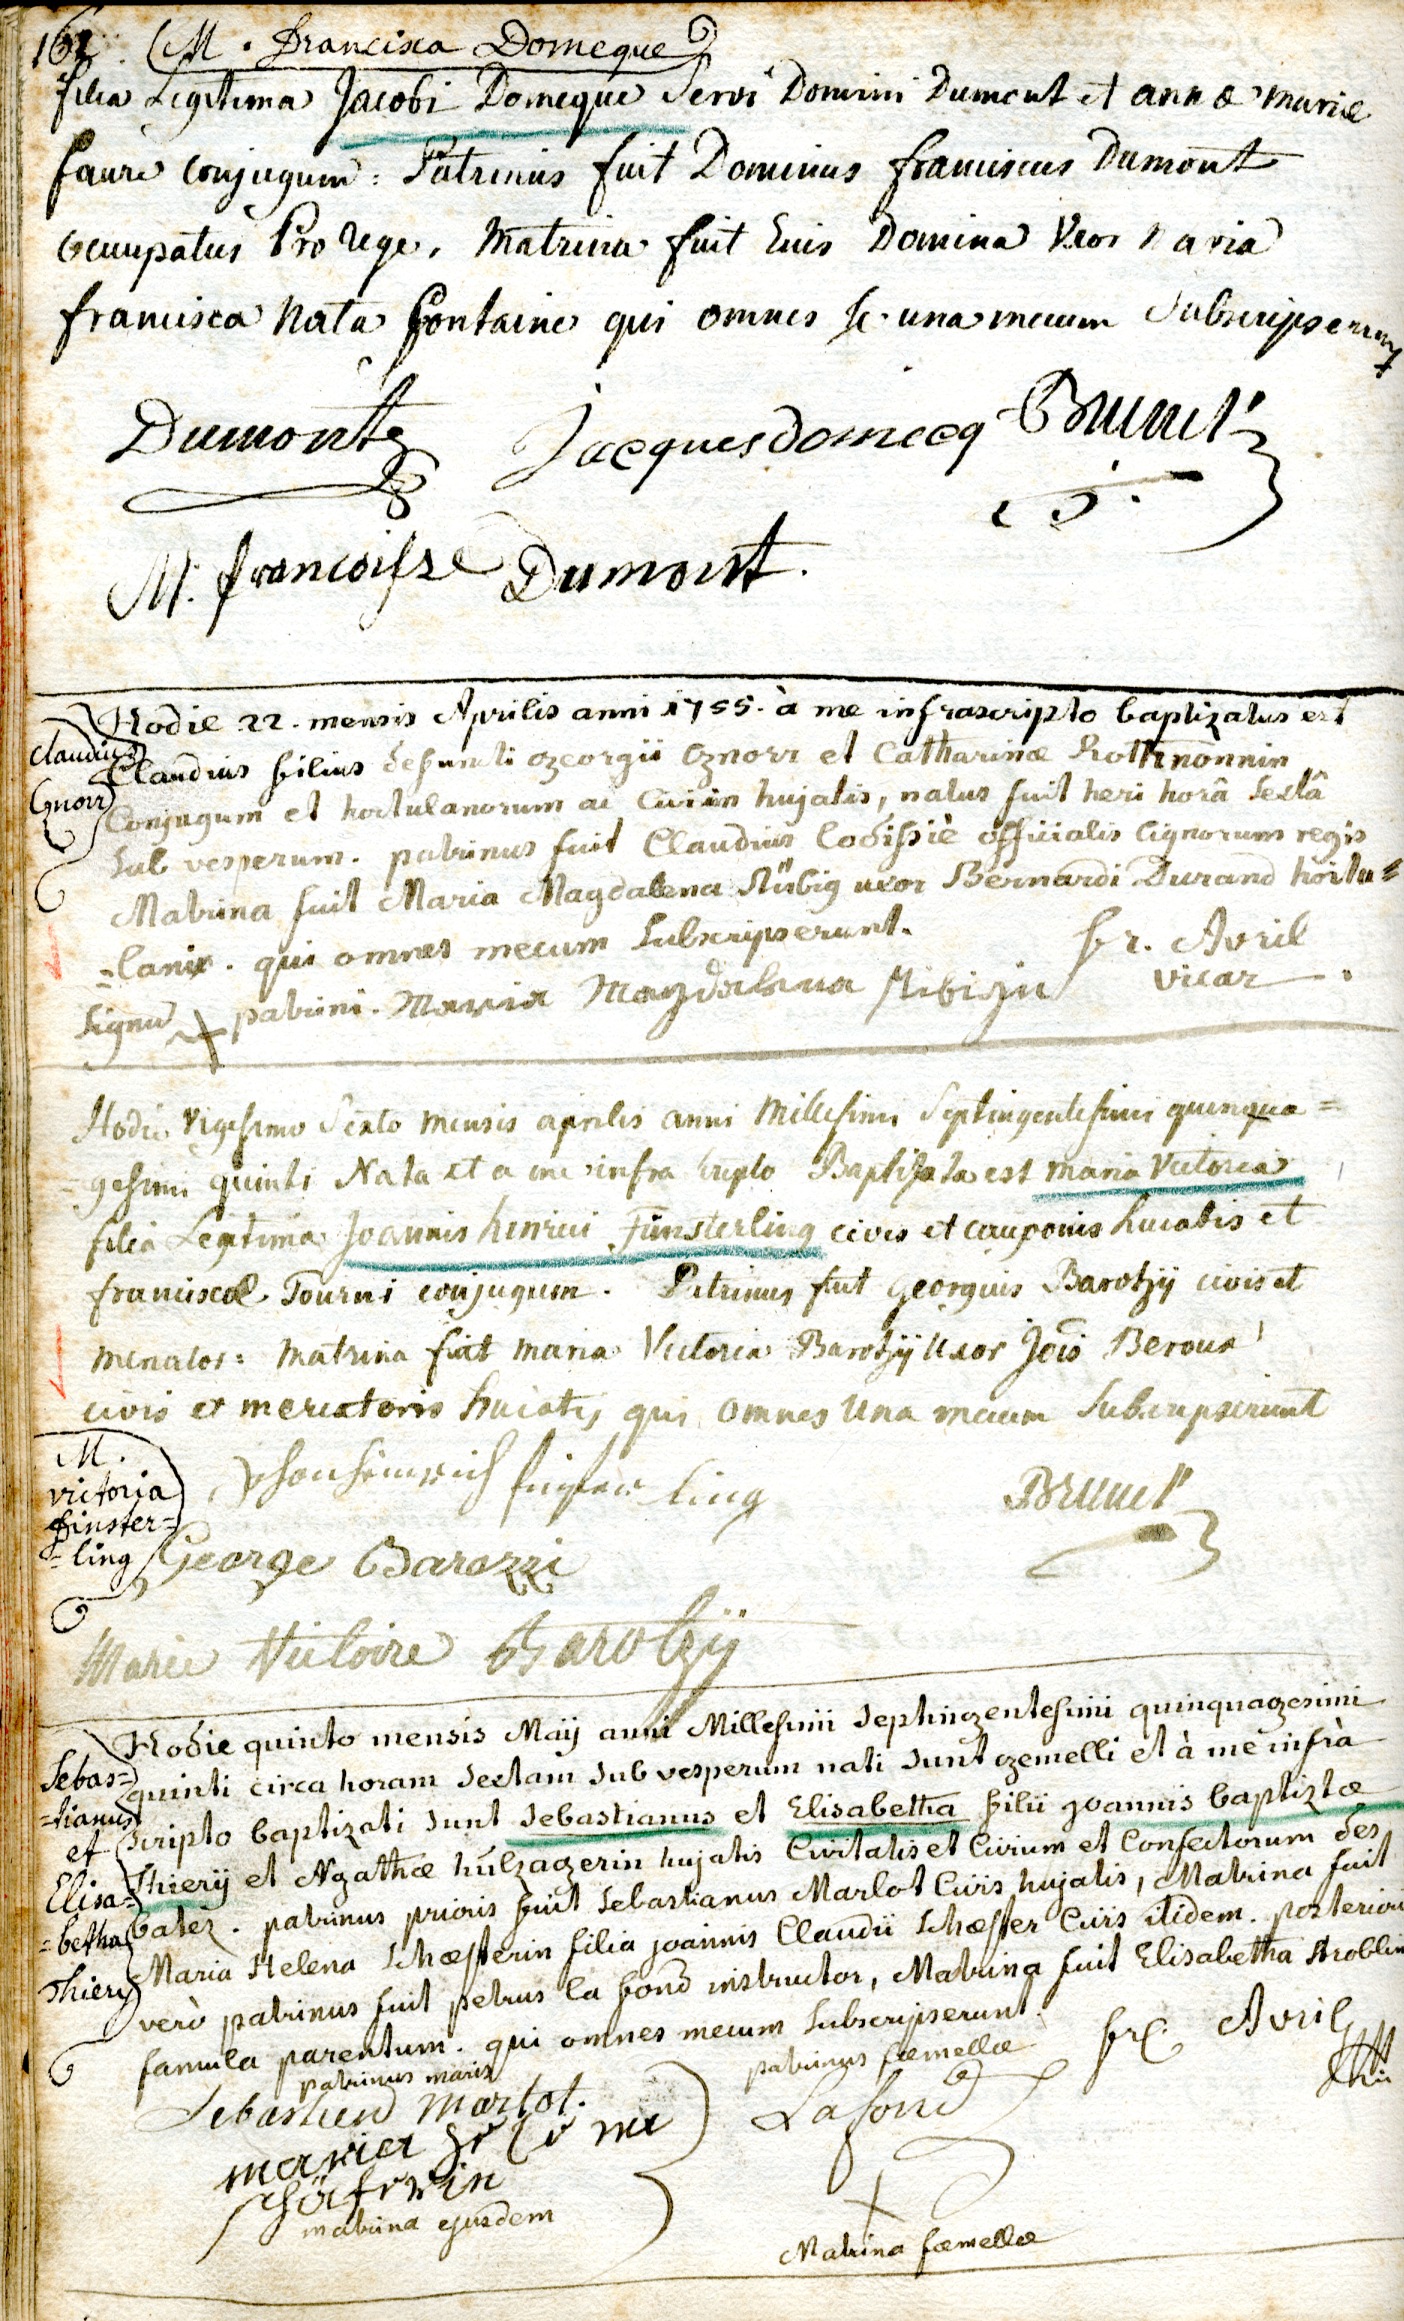 162. M. Francisca Domeque
filia Legitima Jacobi Domeque Servi Domini Dumont et annæ mariæ
faure conjugum: Patrinus fuit Dominus franciscus Dumont
occupatus Pro Rege, Matrina fuit Eius Domina Uxor Maria
francisca Nata fontaine qui omnes hc una mecum Subscripserunt
Dumont Jacques domecq Brunet
M. francoisse Dumont.
Hodie 22. mensis Aprilis anni 1755. à me infrascripto baptizatus est
Claudius
Gnorr
Claudius filius defuncti georgii gnorr et Catharinæ Rothmönnin
Conjugum et hortulanorum ac Civium hujatis, natus fuit heri horâ sextâ
sub vesperum. patrinus fuit Claudius officialis lignorum regis
Matrina fuit Maria Magdalena Nübig uxor Bernardi Durand hortu=
=lani. qui omnes mecum subscripserunt. fr. Avril
signu patrini. Maria Magdalena Nibigin vicar
Hodie Vigesimo Sexto mensis aprilis anni Millesimi Septingentesimi quinqua=
=gesimi quinti Nata et a me infra scripto Baptizata est maria Victoria
filia Legitima Joannis henrici Finsterling civis et cauponis huiatis et
franciscæ Tourni conjugum. Patrinus fuit georgius Barotzÿ civis et
mercator: matrina fuit maria Victoria Barotzÿ uxor Jois Beroua
civis et mercatoris huiatis qui omnes una mecum Subscripserunt
M.
victoria
finster=
=ling
Johan heinrich finster ling Brunet
George Barozzi
Marie Victoire Barotzÿ
Hodie quinto mensis Maÿ anni Millesimi septingentesimi quinquagesimi
Sebas=
=tianus
et
Elisa=
=betha
Thiery
quinti circa horam sextam sub vesperum nati sunt gemelli et à me infrà
scripto baptizati sunt Sebastianus et Elisabetha filii joannis baptiztæ
Thierÿ et Agathæ hülzagerin hujatis Civitatis et Civium et Confectorum des
batez. patrinus prioris fuit Sebastianus Marlot Civis hujatis, Matrina fuit
Maria Helena Schæfferin filia joannis Claudii Schæffer Civis itidem. posterioris
verò patrinus fuit petrus la fond instructor, Matrina fuit Elisabetha Stroblin
famula parentum. qui omnes mecum subscripserunt. fr. Avril
patrinus maris patrinus fœmellæ
Sebastien marlot. Lafond
maria he le na
schäferin
matrina ejusdem
Matrina fœmellæ